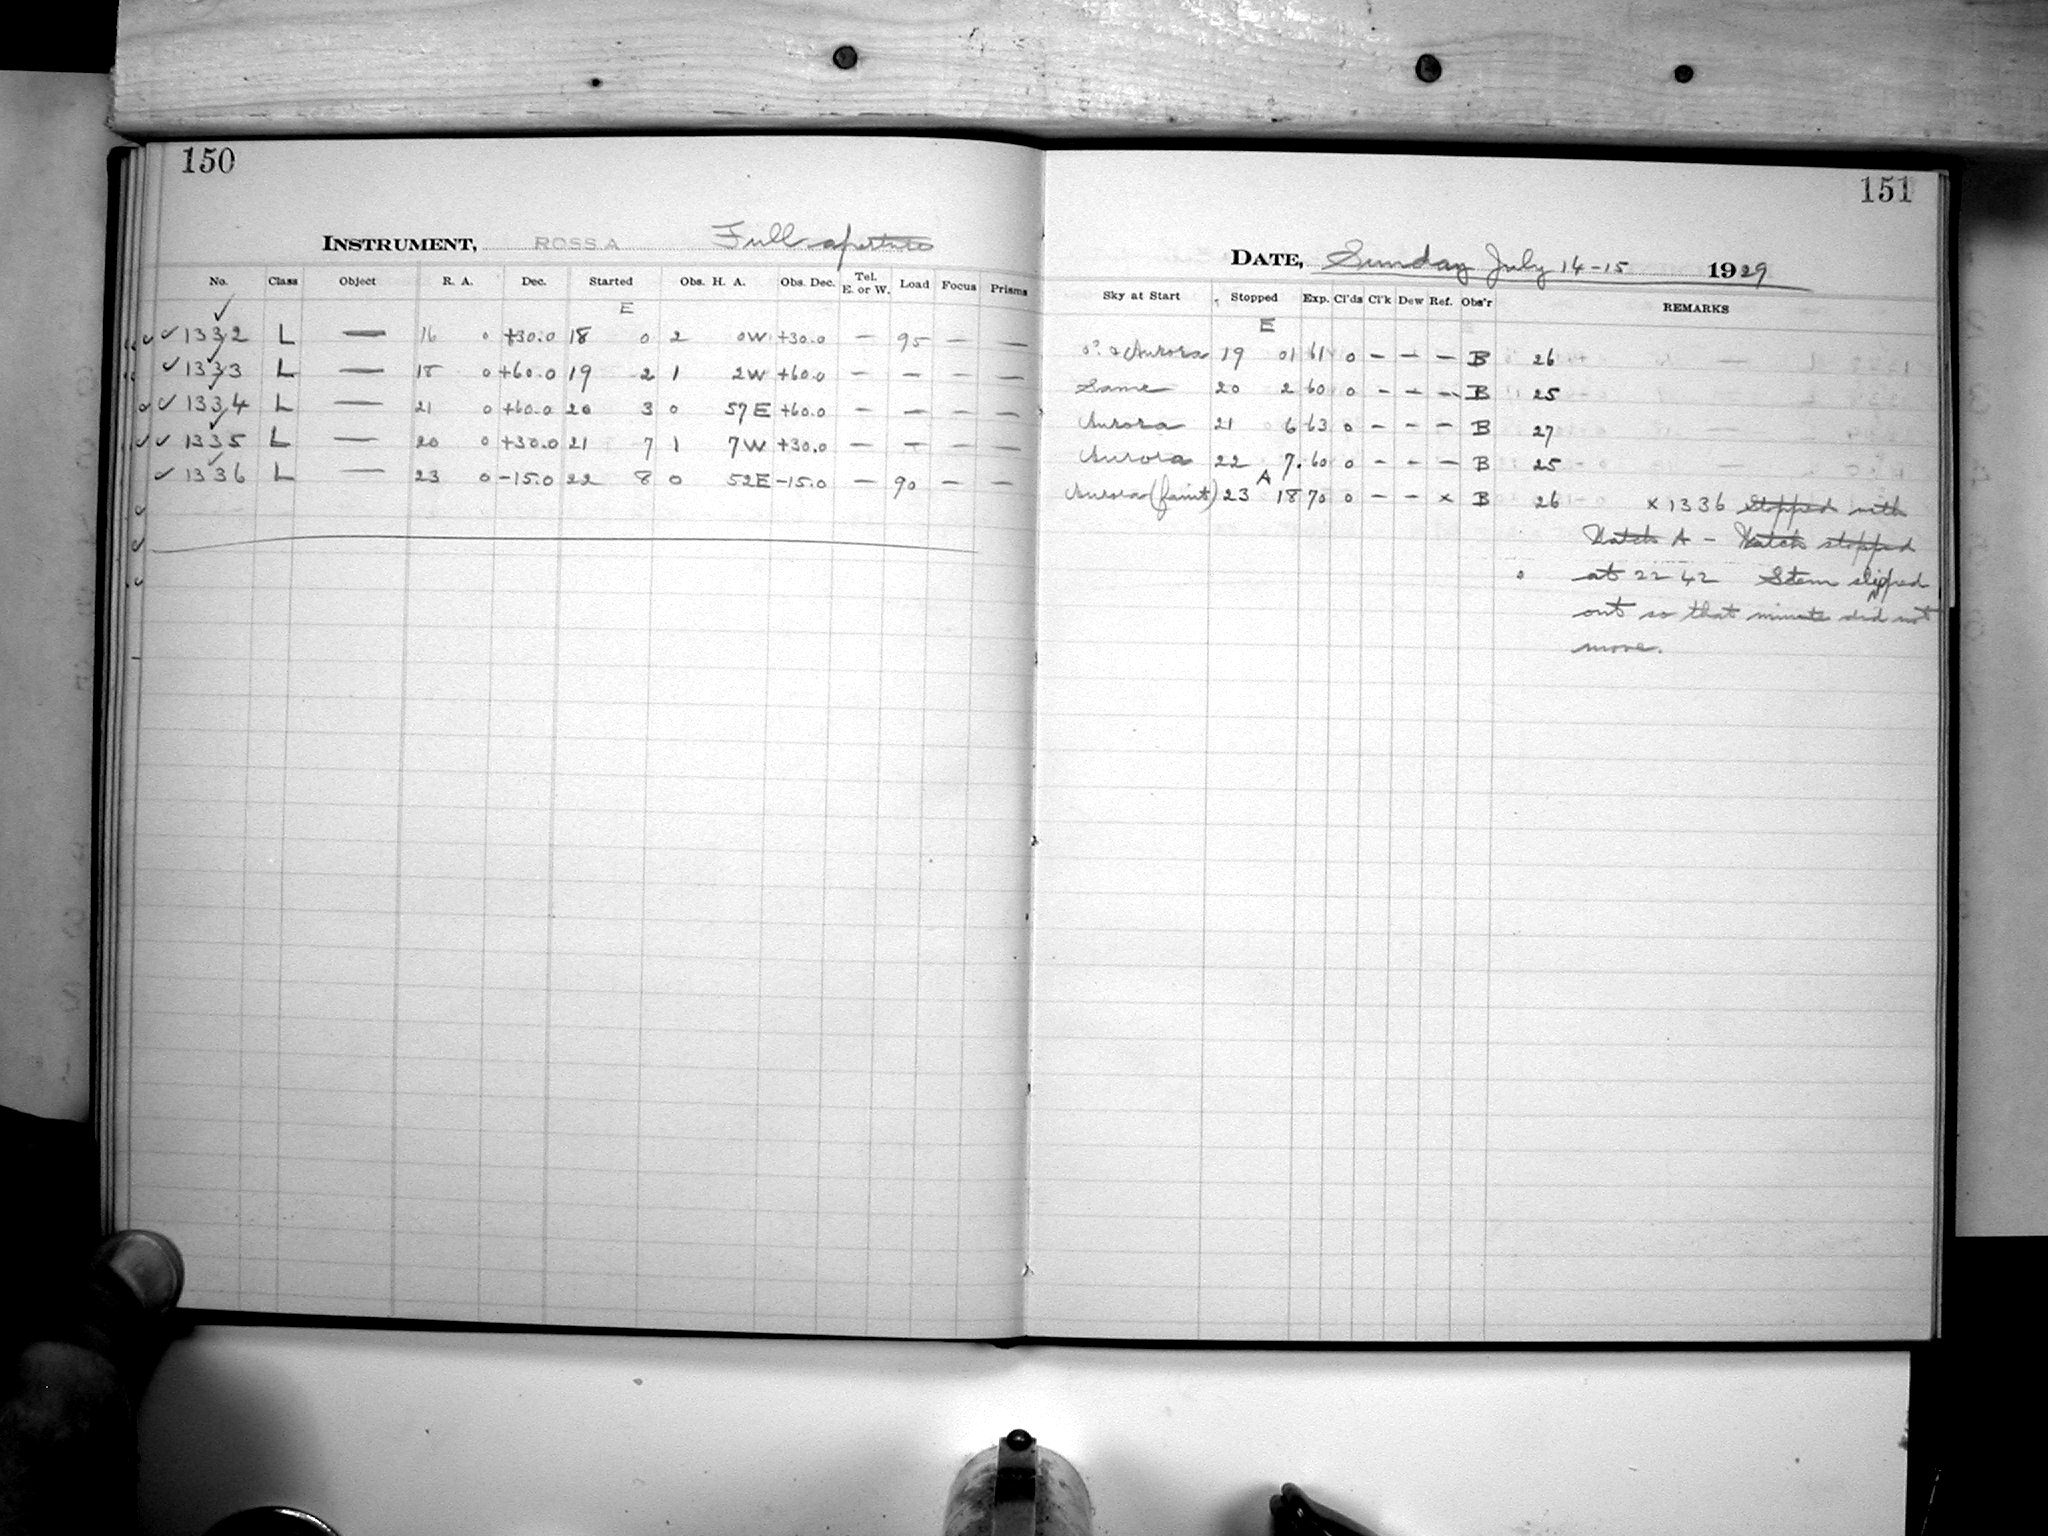 150
INSTRUMENT, ROSS A Full aperture
No. Class Object R. A. Dec. Started Obs. H. A. Obs. Dec. Tel. E. or W. Load Focus Prisms
E
1332 L — 16 0 +30.0 18 0 2 0W +30.0 — 95 — —
1333 L — 18 0 +60.0 19 2 1 2W +60.0 — — — —
1334 L — 21 0 +60.0 20 3 0 57E +60.0 — — — —
1335 L — 20 0 +30.0 21 7 1 7W +30.0 — — — —
1336 L — 23 0 -15.0 22 8 0 52E -15.0 — 90 — —
151
DATE, Sunday July 14-15 1929
Sky at Start Stopped Exp. Cl'ds Cl'k Dew Ref. Obs'r REMARKS
E
Aurora 19 01 61 0 — — — B 26
Same 20 2 60 0 — — — B 25
Aurora 21 6 63 0 — — — B 27
Aurora 22 7. 60 0 — — — B 25
A
Aurora (faint) 23 18 70 0 — — x B 26 x 1336 Stopped with
Watch A - Watch stopped
at 22 42 Stem slipped
out so that minute did not
move.